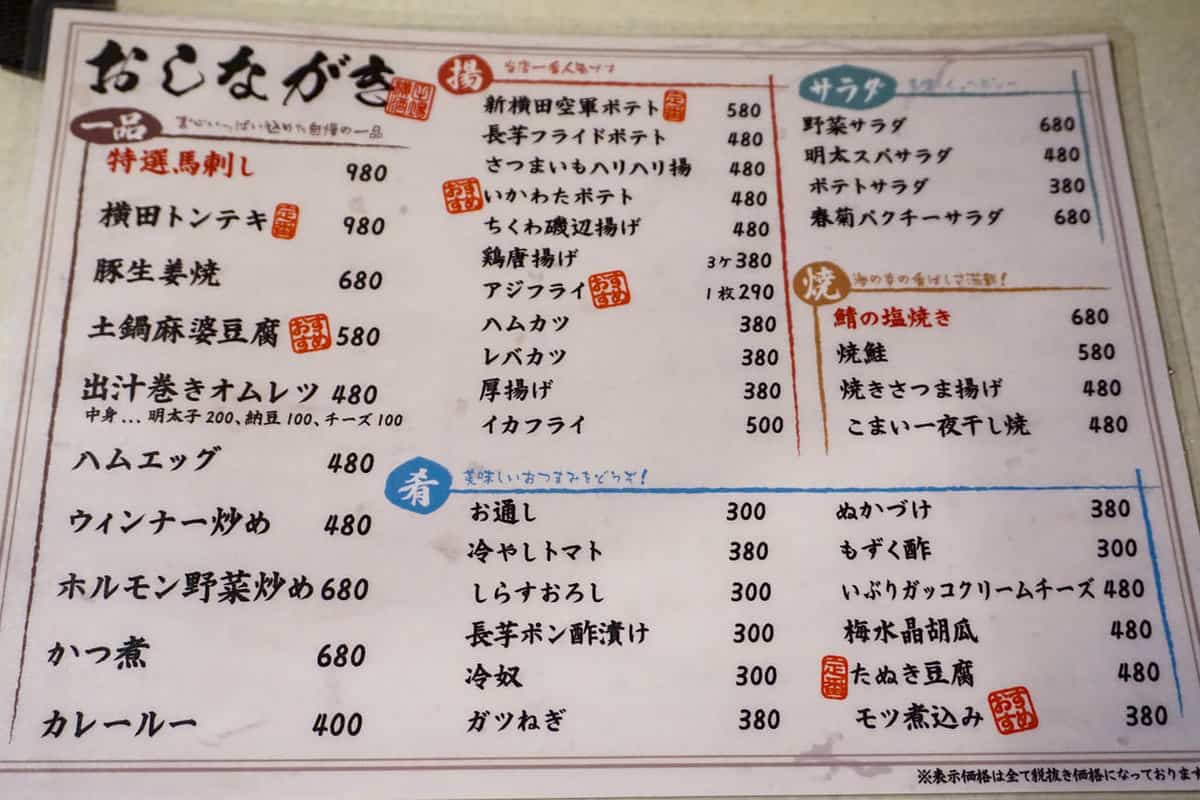 おしながき
一品
真心いっぱい込めた自慢の一品
特選馬刺し 980
横田トンテキ 定番 980
豚生姜焼 680
土鍋麻婆豆腐 おすすめ 580
出汁巻きオムレツ 480
中身…明太子200、納豆100、チーズ100
ハムエッグ 480
ウィンナー炒め 480
ホルモン野菜炒め 680
かつ煮 680
カレールー 400
揚
当店一番人気
新横田空軍ポテト 定番 580
長芋フライドポテト 480
さつまいもハリハリ揚 480
おすすめ いかわたポテト 480
ちくわ磯辺揚げ 480
鶏唐揚げ 3ケ380
アジフライ おすすめ 1枚290
ハムカツ 380
レバカツ 380
厚揚げ 380
イカフライ 500
サラダ
野菜サラダ 680
明太スパサラダ 480
ポテトサラダ 380
春菊パクチーサラダ 680
焼
海の幸の香ばしさ満載!
鯖の塩焼き 680
焼鮭 580
焼きさつま揚げ 480
こまい一夜干し焼 480
肴
美味しいおつまみをどうぞ!
お通し 300
冷やしトマト 380
しらすおろし 300
長芋ポン酢漬け 300
冷奴 300
ガツねぎ 380
ぬかづけ 380
もずく酢 300
いぶりガッコクリームチーズ 480
梅水晶胡瓜 480
定番 たぬき豆腐 480
モツ煮込み おすすめ 380
※表示価格は全て税抜き価格になっております